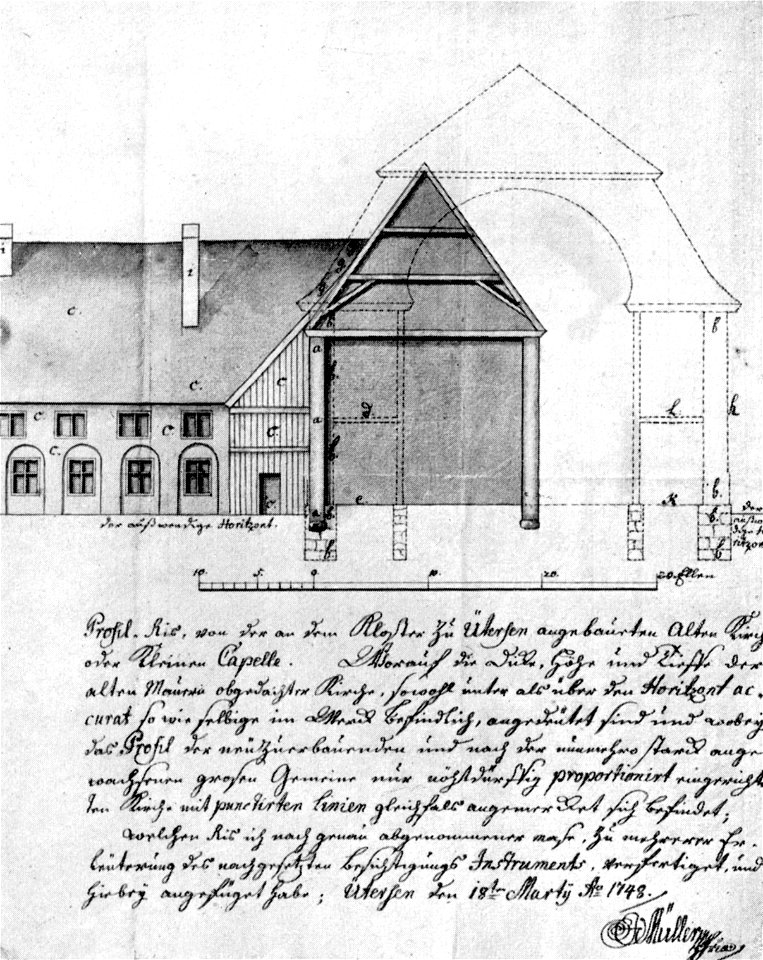 i
i
c.
c.
c
c.
c.
c
c.
c
g
g
b
a
a
a
b
b
b
b
d
e.
b
h
k
b.
b.
b
K
der auswendige Horitzont.
der
10.
5.
0.
10.
20.
20 Ellen
Profil-Ris, von der an dem Kloster zu Ütersen angebaueten Alten Kirch
oder kleinen Capelle. Worauf die Dike, Höhe und Tieffe der
alten Mauern obgedachter Kirche, sowohl unter als über den Horitzont ac-
curat so wie selbige im Werck befindlich, angedeutet sind und wobey
das Profil der neu zuerbauenden und nach der nunmehro starck ange
wachsenen grosen Gemeine nur nöhtdürfftig proportionirt eingericht
ten Kirche mit punctirten Linien gleichfals angemercket sich befindet;
welchen Ris ich nach genau abgenommener mase, zu mehrerer Er-
leüterung des nachgesetzten Besichtigungs Instruments, verfertiget, und
hiebey angefüget habe; Ütersen den 18ten Martÿ Ao 1748.
Müller